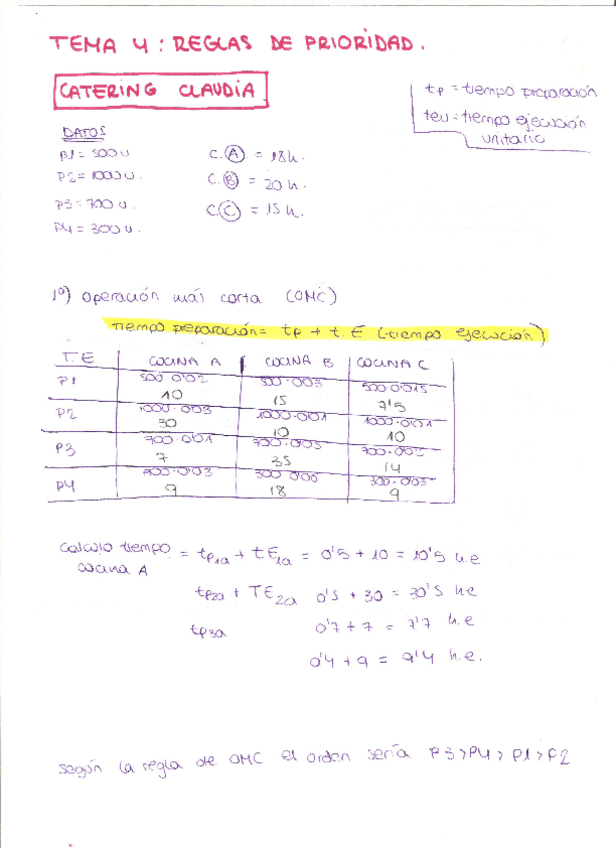 TEMA 4: REGLAS DE PRIORIDAD.
CATERING CLAUDIA
tp = tiempo preparación
teu = tiempo ejecución
unitario
DATOS
P1 = 500 u
P2 = 1000 u.
P3 = 700 u.
P4 = 300 u.
C.(A) = 18h.
C.(B) = 20 h.
C.(C) = 15 h.
1º) Operación más corta (OMC)
Tiempo preparación = tp + t.E (tiempo ejecución)
T.E COCINA A COCINA B COCINA C
P1 500·0'02 500·0'03 500·0'015
10 15 7'5
P2 1000·0'03 1000·0'01 1000·0'01
30 10 10
P3 700·0'01 700·0'05 700·0'02
7 35 14
P4 300·0'03 300·0'06 300·0'03
9 18 9
Calculo tiempo = tp1a + tE1a = 0'5 + 10 = 10'5 h.e
cocina A
tp2a + TE2a 0'5 + 30 = 30'5 h.e
tp3a 0'7 + 7 = 7'7 h.e
0'4 + 9 = 9'4 h.e.
según la regla de OMC el orden sería P3>P4>P1>P2